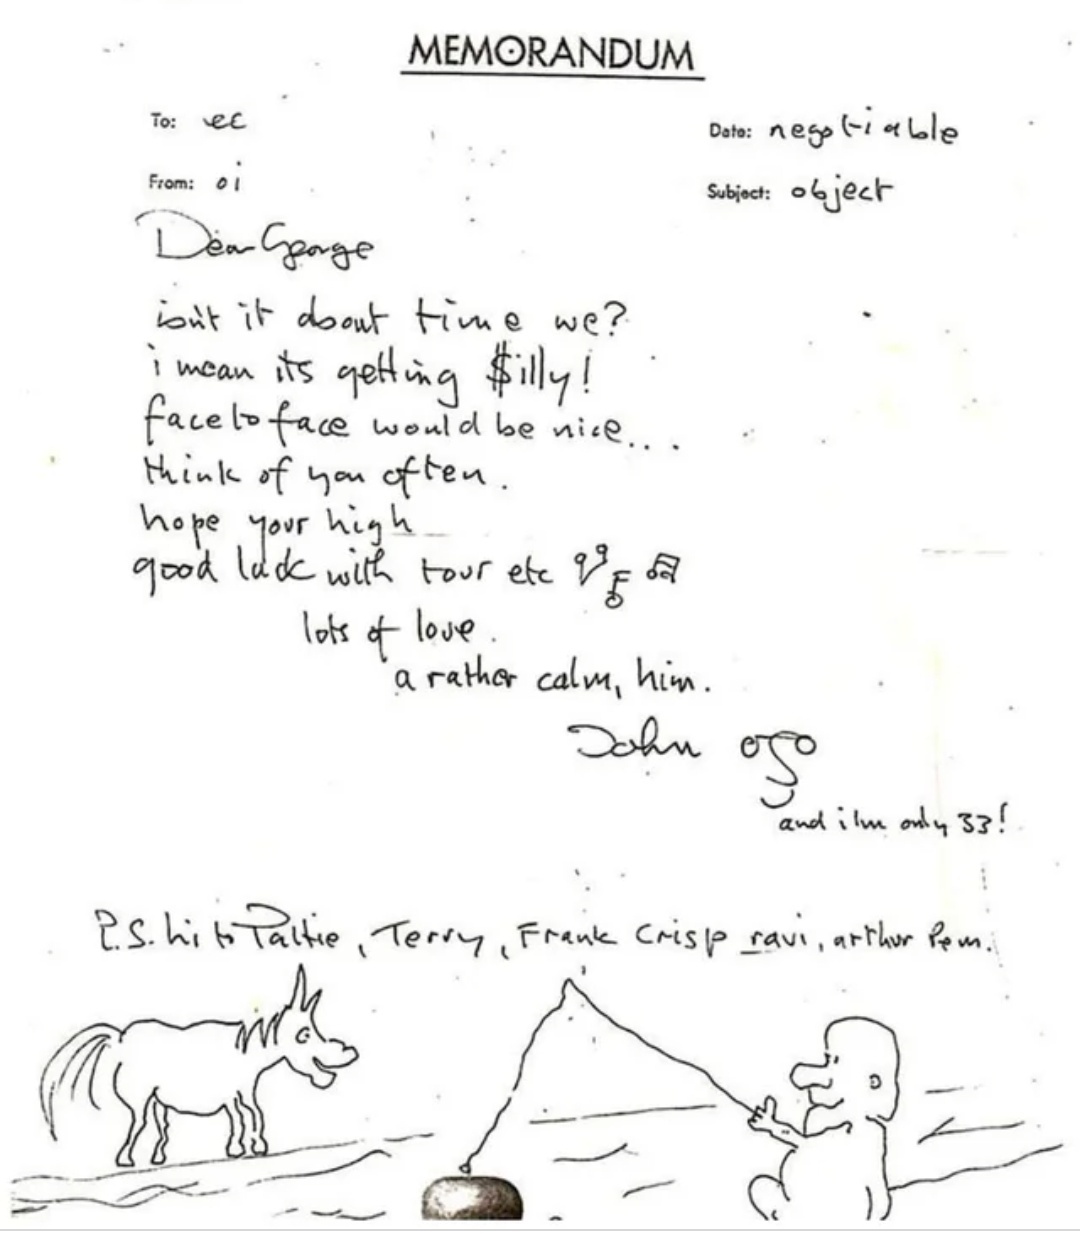 MEMORANDUM
To: ec
Date: negotiable
From: oi
Subject: object
Dear George
isn't it about time we?
i mean its getting $illy!
face to face would be nice...
think of you often.
hope your high
good luck with tour etc
lots of love.
a rather calm, him.
John
and i'm only 33!
P.S. hi to Pattie, Terry, Frank Crisp ravi, arthur